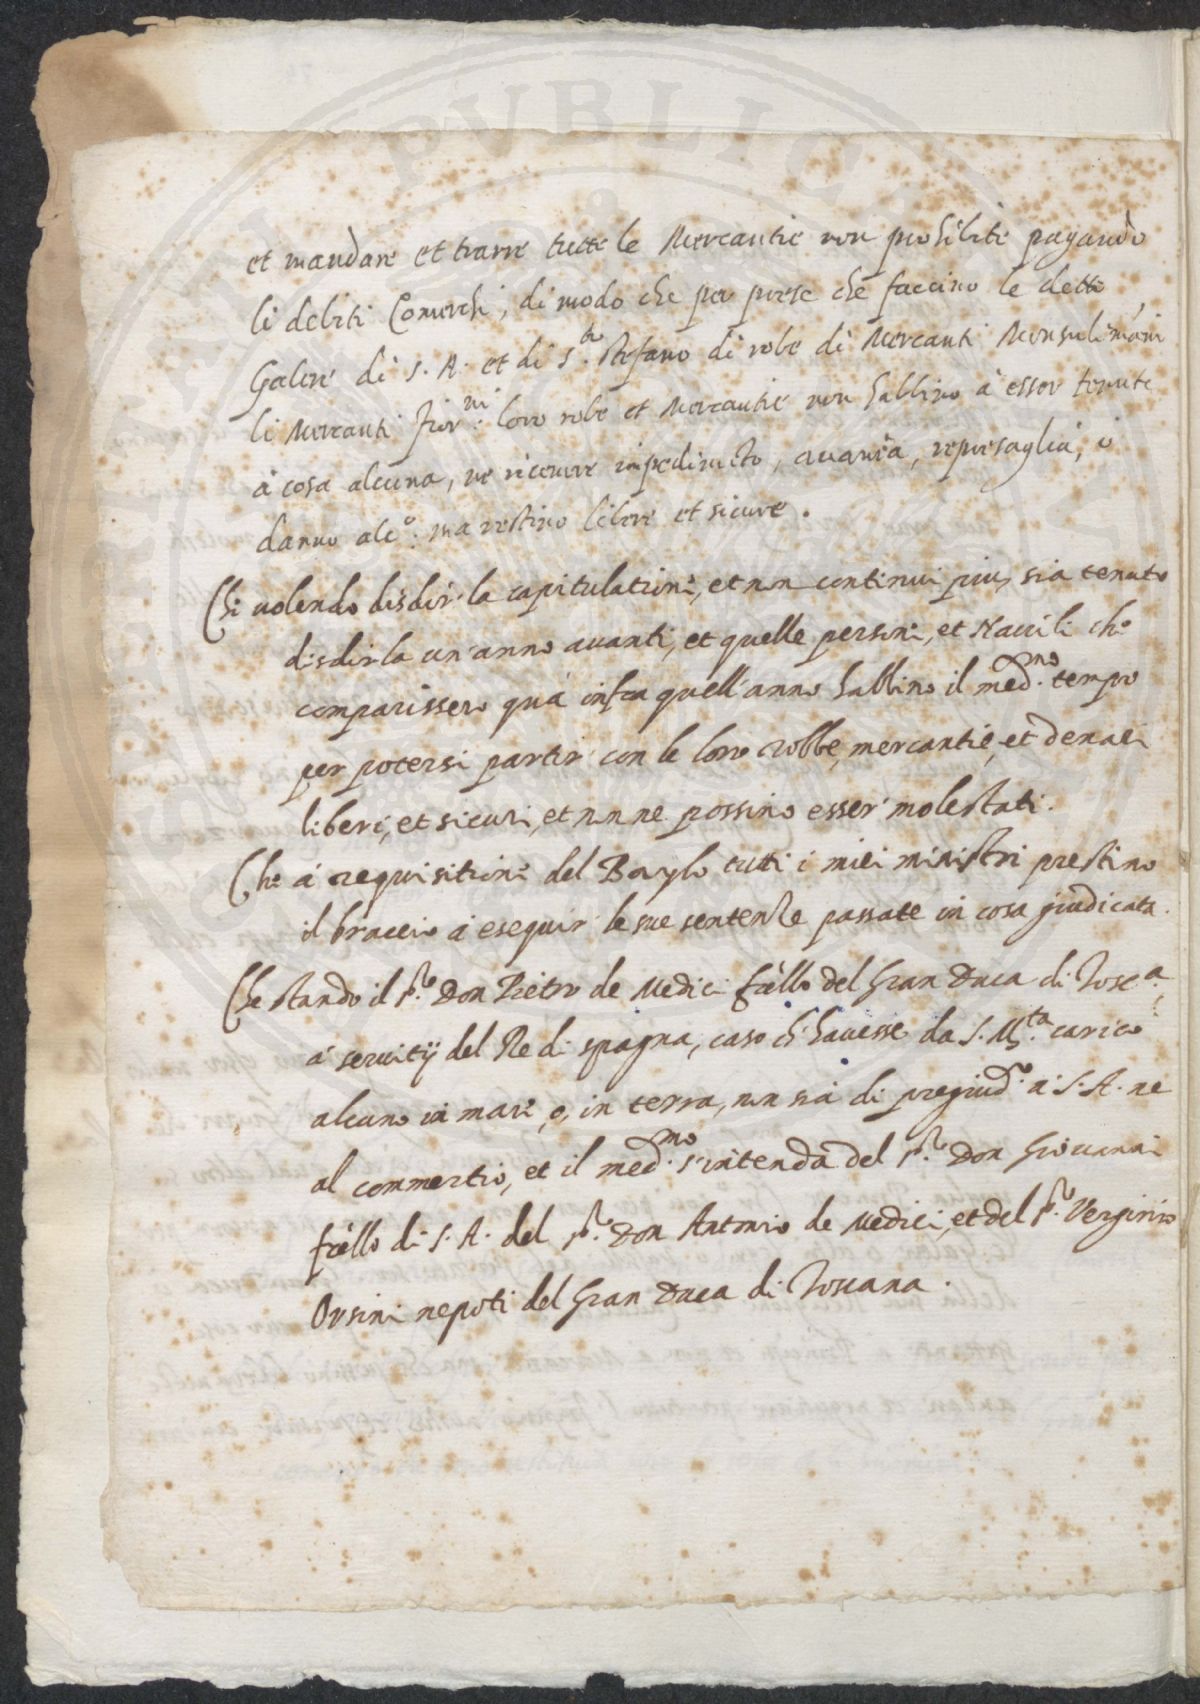 et mandare et trarre tutte le Mercantie non prohibite pagando
li debiti Comerchi, di modo che per prese che faccino le dette
Galere di S. A. et di S.to Stefano di robe di Mercanti Monsulimani
li Mercanti fior.ni loro robe et Mercantie non habbino à esser tenute
à cosa alcuna, ne ricevere impedimto, avania, represaglia, ò
danno alc.o: ma restino libere et sicure.
Che volendo disdir la capitulatione, et non continui piu, sia tenuto
disdirla un'anno avanti, et quelle persone, et Navili che
comparissero quà infra quell'anno habbino il med.mo tempo
per potersi partir con le loro robbe, mercantie, et denari
liberi, et sicuri, et non ne possino esser molestati.
Che à requisitione del Baylo tutti i miei ministri prestino
il braccio à esequir le sue sentenze passate in cosa giudicata.
Che stando il s.re Don Pietro de Medici frello del Gran Duca di Tosc.a,
à servitij del Re di spagna, caso ch' havesse da S. M.ta carico
alcuno in mare, o, in terra, non sia di pregiud.o à S. A. ne
al commertio, et il med.mo s'intenda del s.re Don Giovanni
frello di S. A. del s.re Don Antonio de Medici, et del s.re Verginio
Orsini nepoti del Gran Duca di Toscana.